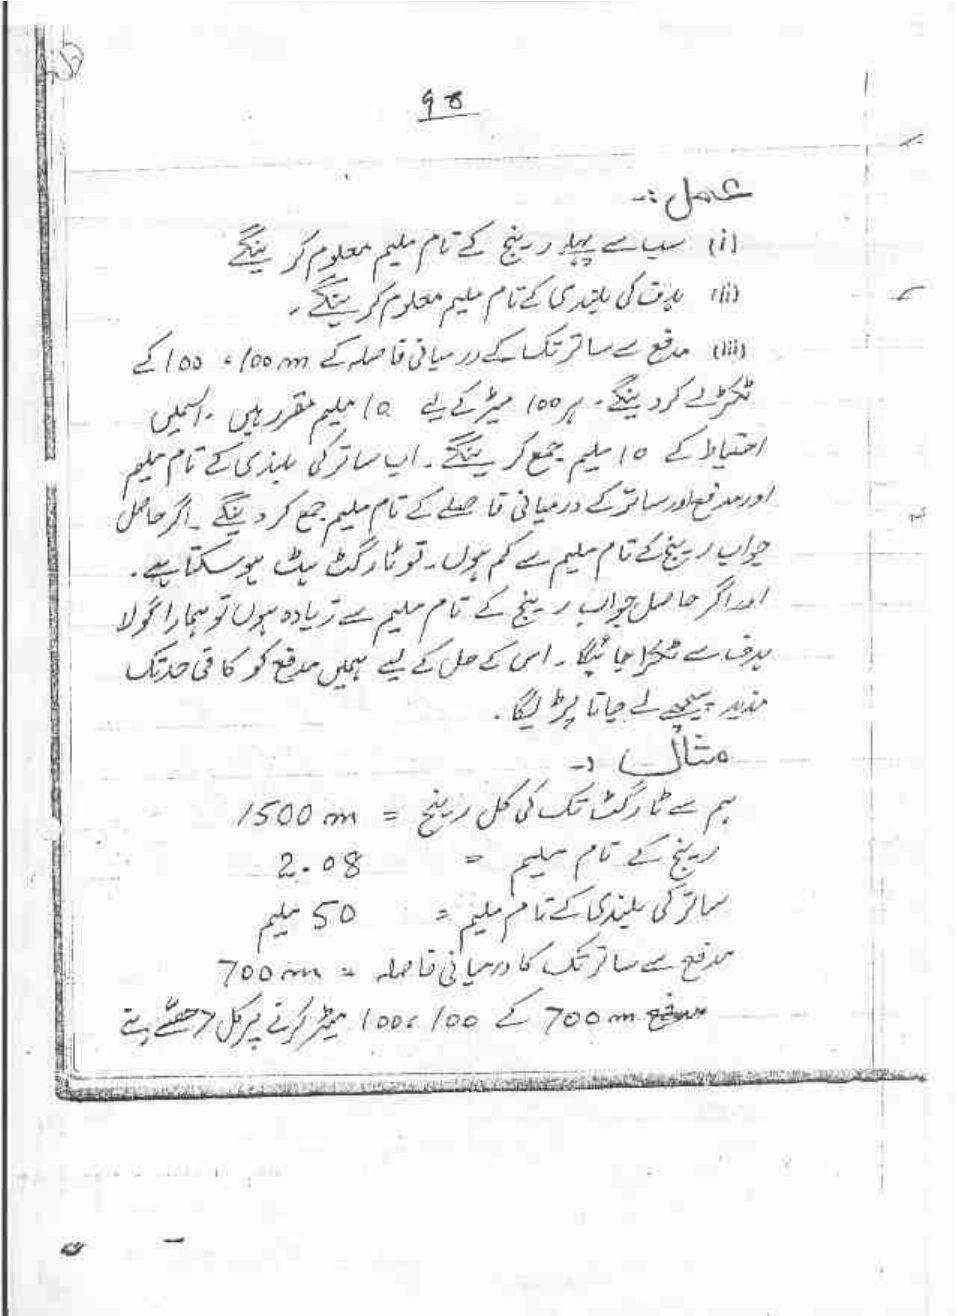 ۹۵
عمل :۔
(i) سب سے پہلے رینج کے تام ملیم معلوم کرینگے
(ii) ہدف کی بلندی کے تام ملیم معلوم کرینگے ۔
(iii) مدفع سے ساتر تک کے درمیانی فاصلہ کے 100 ، 100m کے
ٹکڑے کر دینگے۔ ہر 100 میٹر کے لیے 10 ملیم مقرر ہیں ۔ اسمیں
احتیاط کے 10 ملیم جمع کرینگے ۔ اب ساتر کی بلندی کے تام ملیم
اور مدفع اور ساتر کے درمیانی فاصلے کے تام ملیم جمع کر دینگے ۔ اگر حاصل
جواب رینج کے تام ملیم سے کم ہوں ۔ تو ٹارگٹ ہٹ ہو سکتا ہے ۔
اور اگر حاصل جواب رینج کے تام ملیم سے زیادہ ہوں تو ہمارا گولا
ہدف سے ٹکرا جائیگا ۔ اس کے حل کے لیے ہمیں مدفع کو کافی حد تک
مذید پیچھے لے جانا پڑیگا ۔
مثال :۔
ہم سے ٹارگٹ تک کی کل رینج = 1500 m
رینج کے تام ملیم = 2.08
ساتر کی بلندی کے تام ملیم = 50 ملیم
مدفع سے ساتر تک کا درمیانی فاصلہ = 700 m
700 m کے 100 ، 100 میٹر کرنے پر کل 7 حصّے بنے